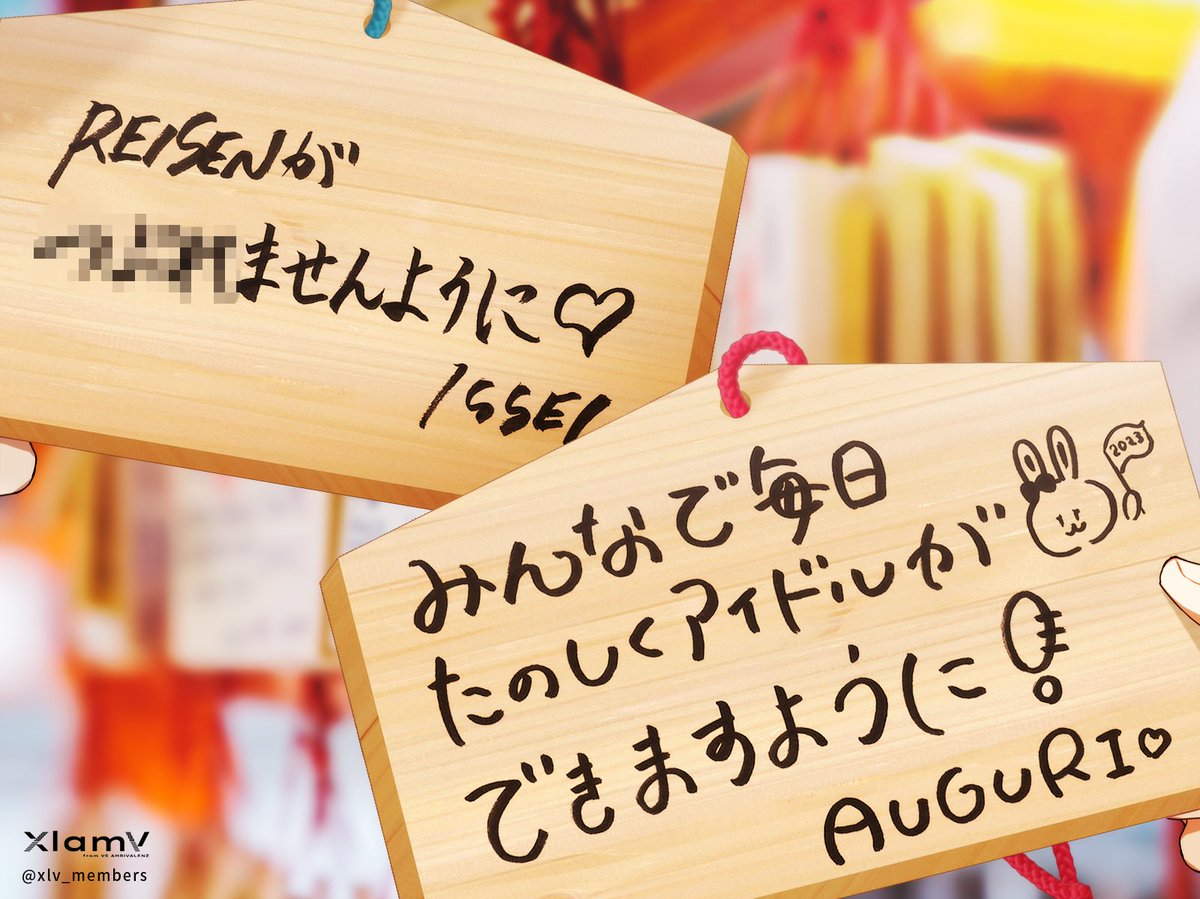 REISENが
ませんように♡
ISSEI
みんなで毎日
たのしくアイドルが
2023
できますように!
AUGURIO♡
XlamV
from VS AMBIVALENZ
@xlv_members